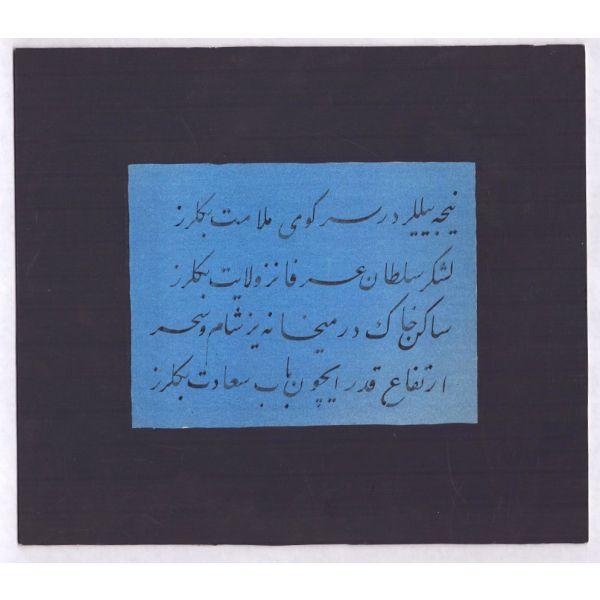 نیجه ییللر در سر کوی ملامت بکلرز
لشکر سلطان عرفانز ولایت بکلرز
ساکن خاک در میخانه یز شام و سحر
ارتفاع قدر ایچون باب سعادت بکلرز